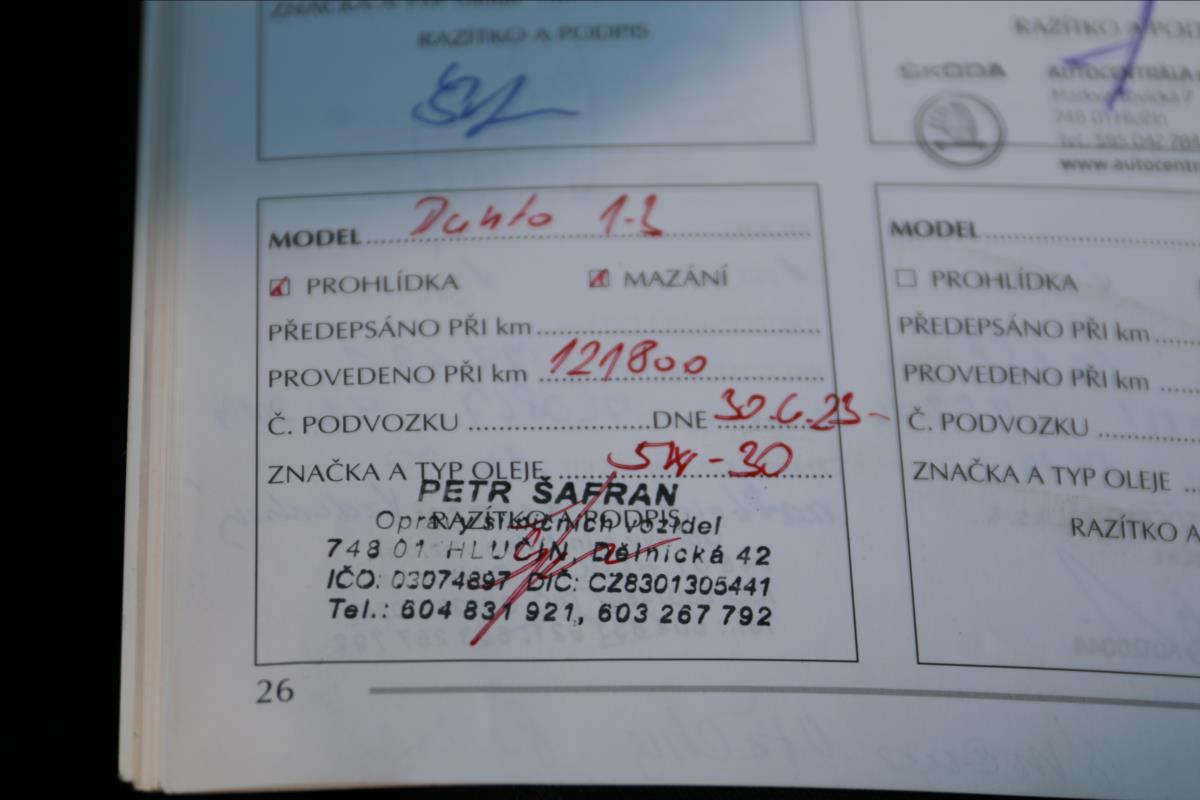 ZNAČKA A TYP
RAZÍTKO A PODPIS
RAZÍTKO A PODP
ŠKODA
AUTOCENTRÁLA
748 01 Hlučín
Tel.: 595 042 784
www.autocentr
MODEL Punto 1.3
PROHLÍDKA MAZÁNÍ
PŘEDEPSÁNO PŘI km
PROVEDENO PŘI km 121800
Č. PODVOZKU DNE 30.6.23-
ZNAČKA A TYP OLEJE 5W-30
PETR ŠAFRAN
RAZÍTKO A PODPIS
Opravy silničních vozidel
748 01 HLUČÍN, Dělnická 42
IČO: 03074897 DIČ: CZ8301305441
Tel.: 604 831 921, 603 267 792
26
MODEL
PROHLÍDKA
PŘEDEPSÁNO PŘI km
PROVEDENO PŘI km
Č. PODVOZKU
ZNAČKA A TYP OLEJE
RAZÍTKO A